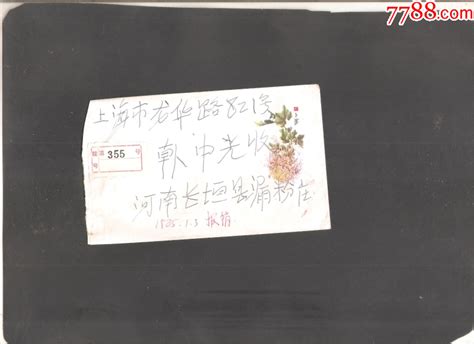 7788.com
上海市龙华路82号
355
中光收
河南长垣县漏粉庄
报销